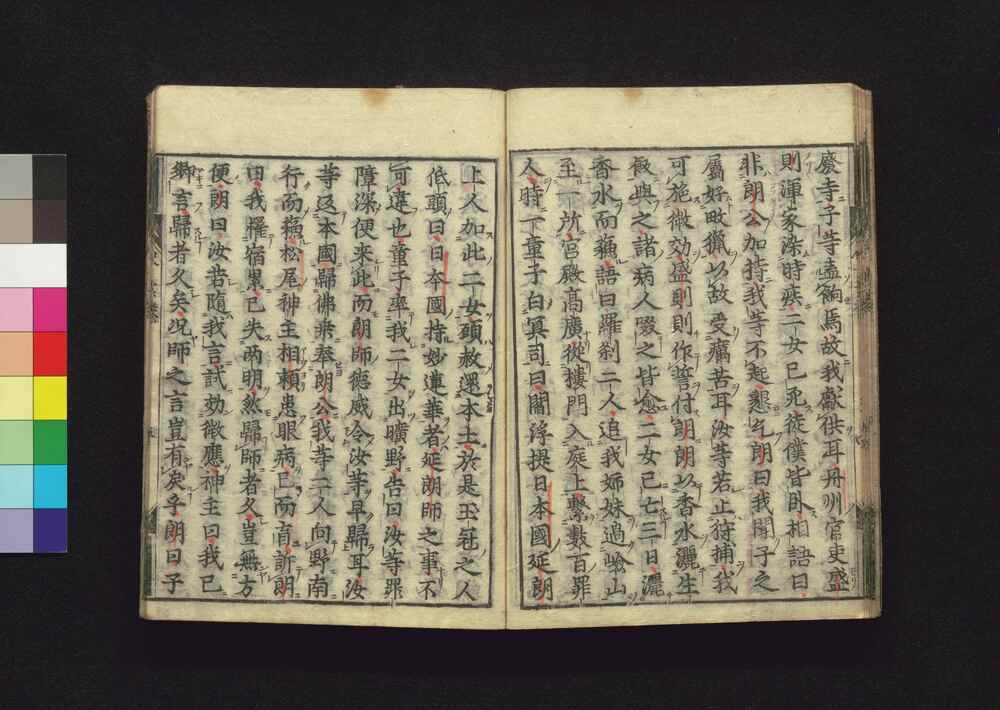 廢寺子等壒餉焉故我獻供耳丹州官吏盛
則渾家染時疾二女已死徒僕皆臥相語曰
非朗公加持我等不起懇乞朗曰我聞子之
屬好畋獵以故受癘苦耳汝等若止狩捕我
可施微効盛則則作誓付朗朗以香水灑生
飯與之諸病人啜之皆愈二女已亡三日灑
香水而藕語曰羅剎二人追我姊妹過嶮山
至一所宮殿高廣從樓門入庭上繫數百罪
人時一童子白冥司曰閻浮提日本國延朗
上人加此二女頭赦還本土於是玉冠之人
低頭曰日本國持妙蓮華者延朗師之事不
可違也童子率我二女出曠野告曰汝等罪
障深便來此而朗師德威令汝等早歸耳汝
等返本國歸佛乘奉朗公我等二人向野南
行而藕松尾神主相賴患眼病已而盲訢朗
曰我罹宿累已失兩明然歸師者久豈無方
便朗曰汝若隨我言試効徵應神主曰我已
御言歸者久矣況師之言豈有戾乎朗曰子